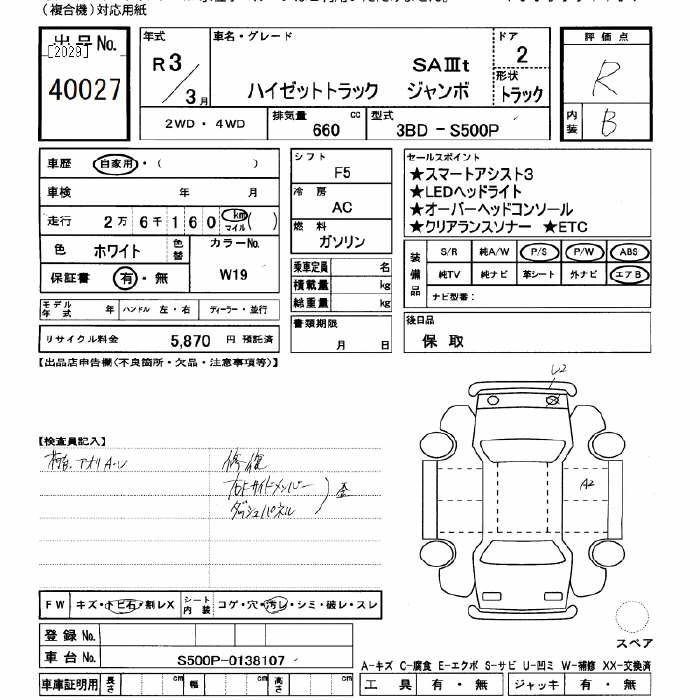 （複合機）対応用紙
出品No. [2029]
40027
年式 R3／3月
車名・グレード
SAⅢt
ハイゼットトラック ジャンボ
ドア 2
形状 トラック
評価点 R
内装 B
2WD・4WD
排気量 660 cc
型式 3BD-S500P
車歴 自家用・（ ）
車検 年 月
走行 2万6千160 km マイル( )
色 ホワイト 色替
カラーNo. W19
保証書 有・無
モデル年式 年 ハンドル 左・右 ディーラー・並行
リサイクル料金 5,870 円 預託済
シフト F5
冷房 AC
燃料 ガソリン
乗車定員 名
積載量 kg
総重量 kg
書類期限 月 日
セールスポイント
★スマートアシスト3
★LEDヘッドライト
★オーバーヘッドコンソール
★クリアランスソナー ★ETC
装備品 S/R 純A/W P/S P/W ABS
純TV 純ナビ 革シート 外ナビ エアB
ナビ型番：
後日品
保 取
【出品店申告欄(不良箇所・欠品・注意事項等)】
【検査員記入】
荷台、アオリA-U
修復
右Fサイドメンバー
ダッシュパネル
歪
A2
FW キズ・トビ石・割レX
シート内装 コゲ・穴・汚レ・シミ・破レ・スレ
登録No.
車台No. S500P-0138107
車庫証明用 長さ cm 幅 cm 高さ cm
スペア
A-キズ C-腐食 E-エクボ S-サビ U-凹ミ W-補修 XX-交換済
工具 有・無 ジャッキ 有・無